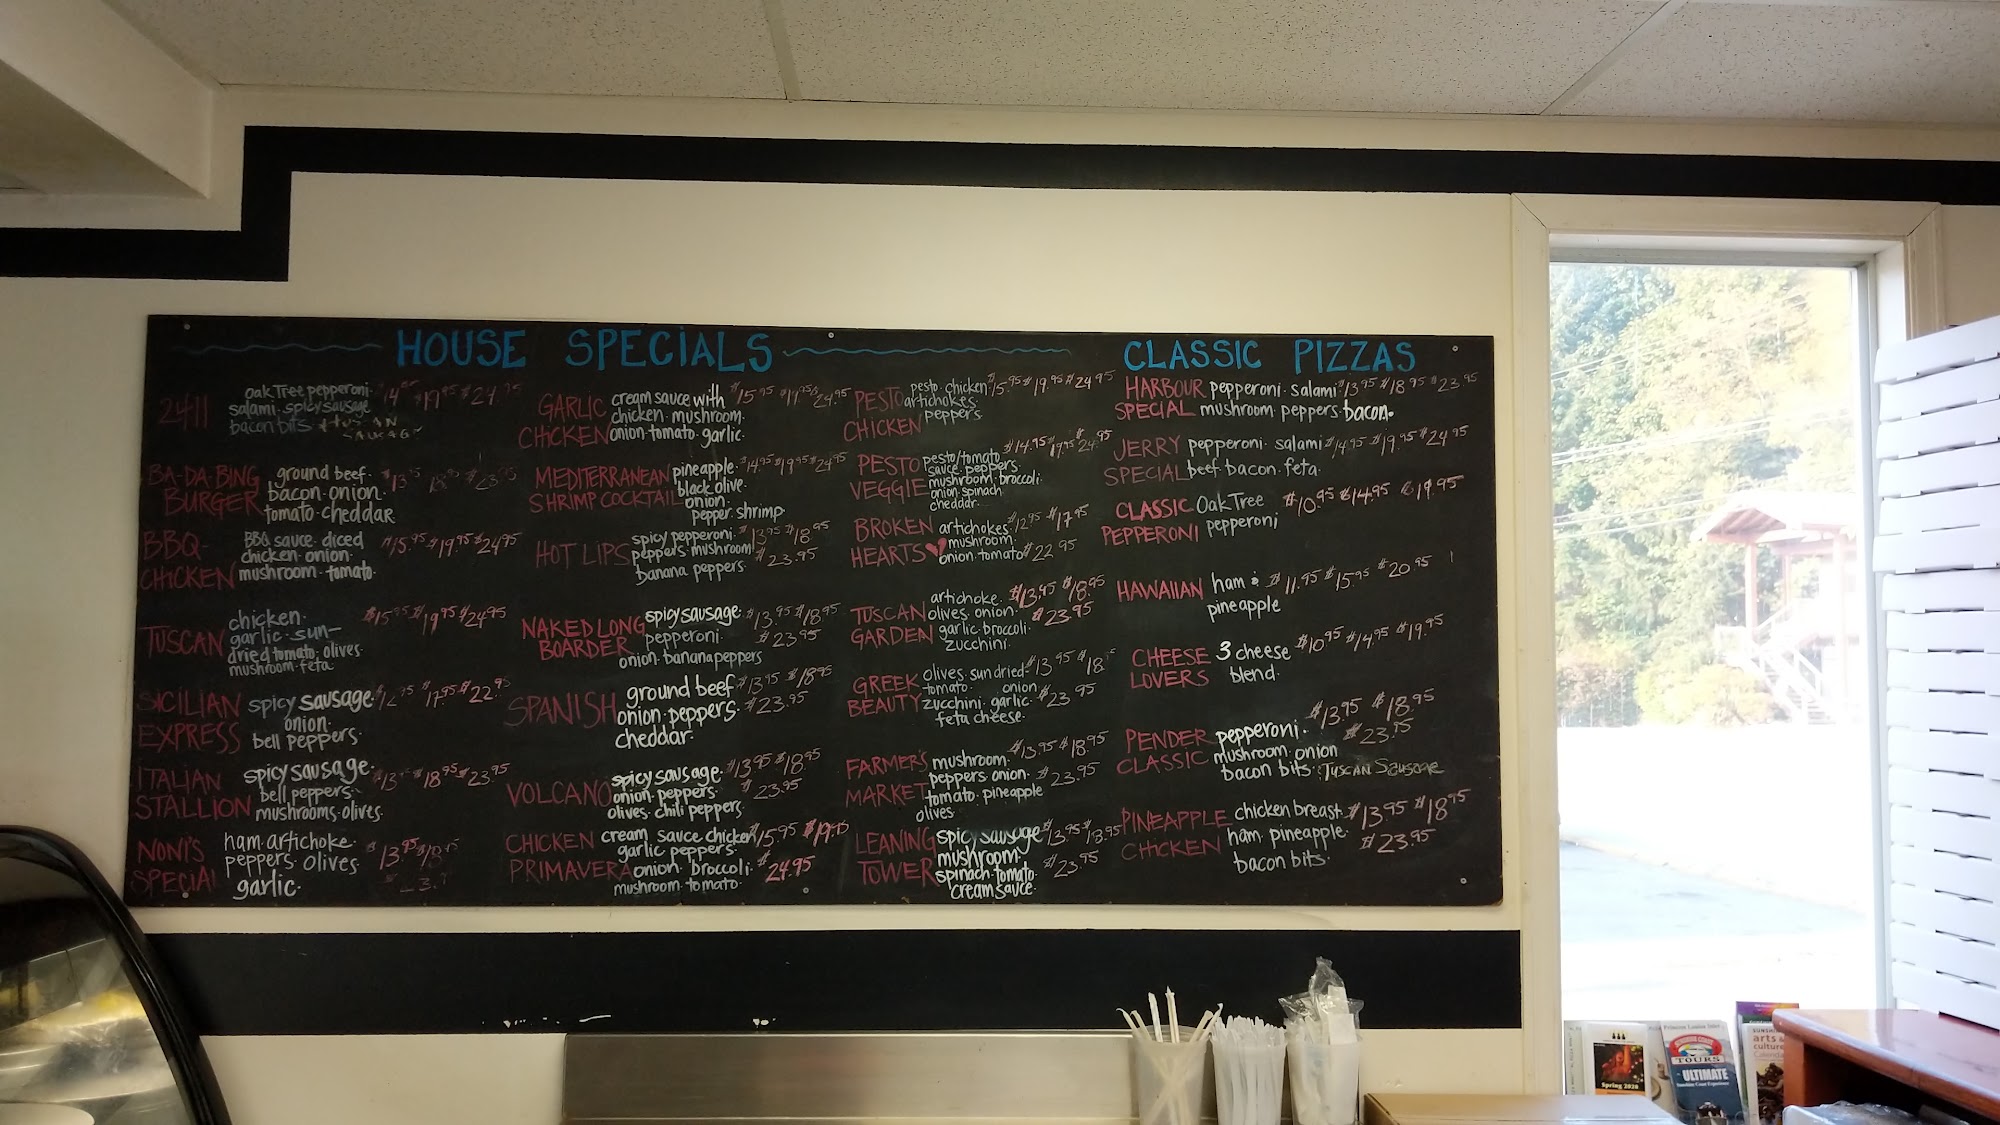 HOUSE SPECIALS
2411 Oak Tree pepperoni. $19.95 $24.95
salami. spicy sausage
bacon bits
BA-DA-BING BURGER ground beef. $23.95
bacon. onion.
tomato. cheddar.
BBQ. CHICKEN BBQ sauce. diced $15.95 $19.95 $24.95
chicken. onion.
mushroom. tomato.
TUSCAN chicken. $15.95 $19.95 $24.95
garlic. sun-
dried tomato. olives.
mushroom. feta.
SICILIAN EXPRESS spicy sausage. $17.95 $22.95
onion.
bell peppers.
ITALIAN STALLION spicy sausage. $18.95 $23.95
bell peppers.
mushrooms. olives.
NONI'S SPECIAL ham. artichoke. $13.95
peppers. olives.
garlic.
GARLIC CHICKEN cream sauce with $15.95 $24.95
chicken. mushroom.
onion. tomato. garlic.
MEDITERRANEAN SHRIMP COCKTAIL pineapple. $14.95 $19.95 $24.95
black olive.
onion.
pepper. shrimp.
HOT LIPS spicy pepperoni. $13.95 $18.95
peppers. mushroom.
banana peppers. $23.95
NAKED LONG BOARDER spicy sausage. $13.95 $18.95
pepperoni. $23.95
onion. banana peppers
SPANISH ground beef $13.95 $18.95
onion. peppers. $23.95
cheddar.
VOLCANO spicy sausage. $13.95 $18.95
onion. peppers. $23.95
olives. chili peppers.
CHICKEN PRIMAVERA cream sauce chicken $15.95 $19.95
garlic. peppers.
onion. broccoli. $24.95
mushroom. tomato.
PESTO CHICKEN pesto. chicken $15.95 $19.95 $24.95
artichokes.
peppers.
PESTO VEGGIE pesto/tomato $14.95 $19.95 $24.95
sauce. peppers.
mushroom. broccoli.
onion. spinach.
cheddar.
BROKEN HEARTS artichokes. $12.95 $17.95
mushroom.
onion. tomato $22.95
TUSCAN GARDEN artichoke. $13.95 $18.95
olives. onion. $23.95
garlic. broccoli.
zucchini.
GREEK BEAUTY olives. sun dried $13.95
tomato. onion
zucchini. garlic. $23.95
feta cheese.
FARMER'S MARKET mushroom. $13.95 $18.95
peppers. onion. $23.95
tomato. pineapple
olives
LEANING TOWER spicy sausage $13.95 $18.95
mushroom.
spinach. tomato. $23.95
cream sauce.
CLASSIC PIZZAS
HARBOUR SPECIAL pepperoni. salami. $13.95 $18.95 $23.95
mushroom. peppers. bacon.
JERRY SPECIAL pepperoni. salami $14.95 $19.95 $24.95
beef. bacon. feta.
CLASSIC PEPPERONI Oak Tree $10.95 $14.95 $19.95
pepperoni
HAWAIIAN ham & $11.95 $15.95 $20.95
pineapple
CHEESE LOVERS 3 cheese $10.95 $14.95 $19.95
blend.
PENDER CLASSIC pepperoni. $13.95 $18.95
mushroom. onion $23.95
bacon bits. TUSCAN SAUSAGE
PINEAPPLE CHICKEN chicken breast. $13.95 $18.95
ham. pineapple. $23.95
bacon bits.
Spring 2020
TOURS
ULTIMATE
arts &
culture